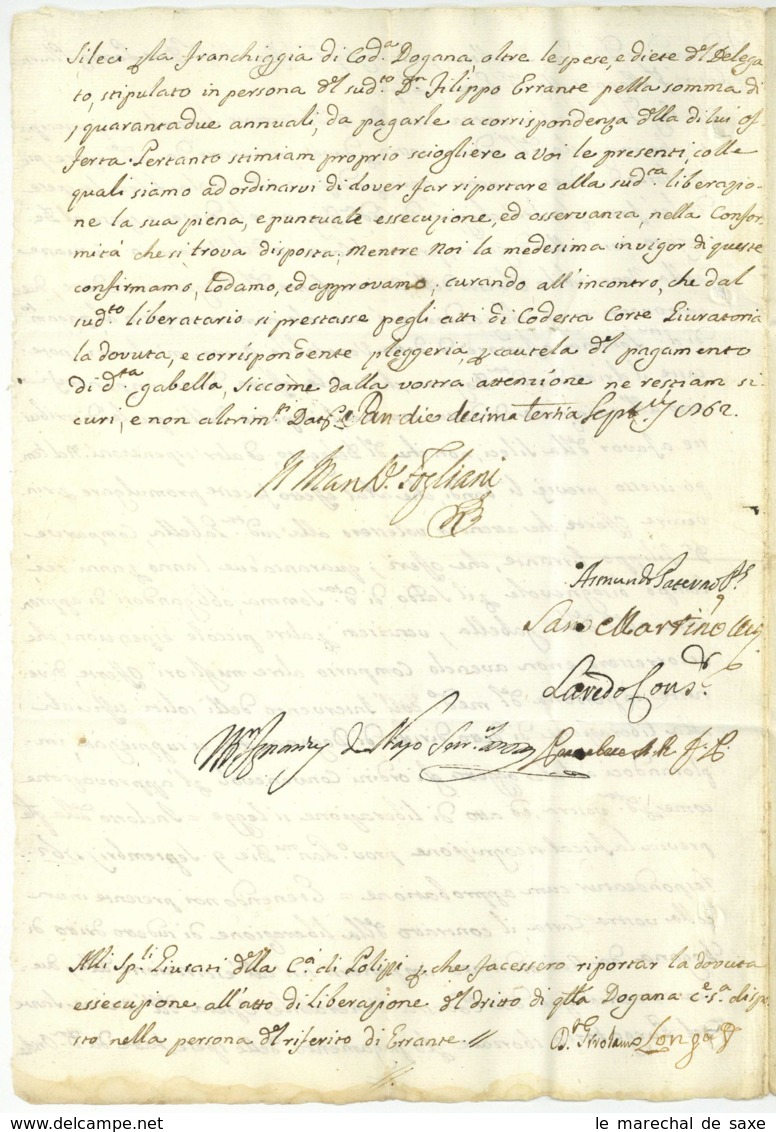 Sileci p la franchiggia di Cod.ª Dogana, oltre le spese, e diete dl Delega
to, stipulato in persona dl sud.to Dn Filippo Errante pella somma di
quarantadue annuali, da pagarle a corrispondenza dlla di lui of
ferta. Pertanto stimiam proprio sciogliere a voi le presenti, colle
quali siamo ad ordinarvi di dover far riportare alla sud.ta liberazio=
ne la sua piena, e puntuale essecuzione, ed osservanza, nella Confor=
mità che si trova disposta; mentre Noi la medesima in vigor di queste
confirmamo, lodamo, ed approvamo; curando all'incontro, che dal
sud.to liberatario si prestasse pegli atti di Codesta Corte Giuratoria
la dovuta, e corrispondente pleggeria, p cautela dl pagamento
di d.ta gabella, siccome dalla vostra attenzione ne restiam si=
curi, e non altrim.ti Dat Pan die decima tertia Septris 1762.
Il Man Fogliani
Asmundo Paternò Ps
San Martino
Laredo Cons.r
de Napo
Alli Sp.li Giurati dlla C.ª di Polizzi p che facessero riportar la dovuta
essecuzione all'atto di liberazione dl dritto di qlla Dogana c.e s.ª dispo
sto nella persona dl riferito di Errante. //
D. Girolamo Longo
le marechal de saxe